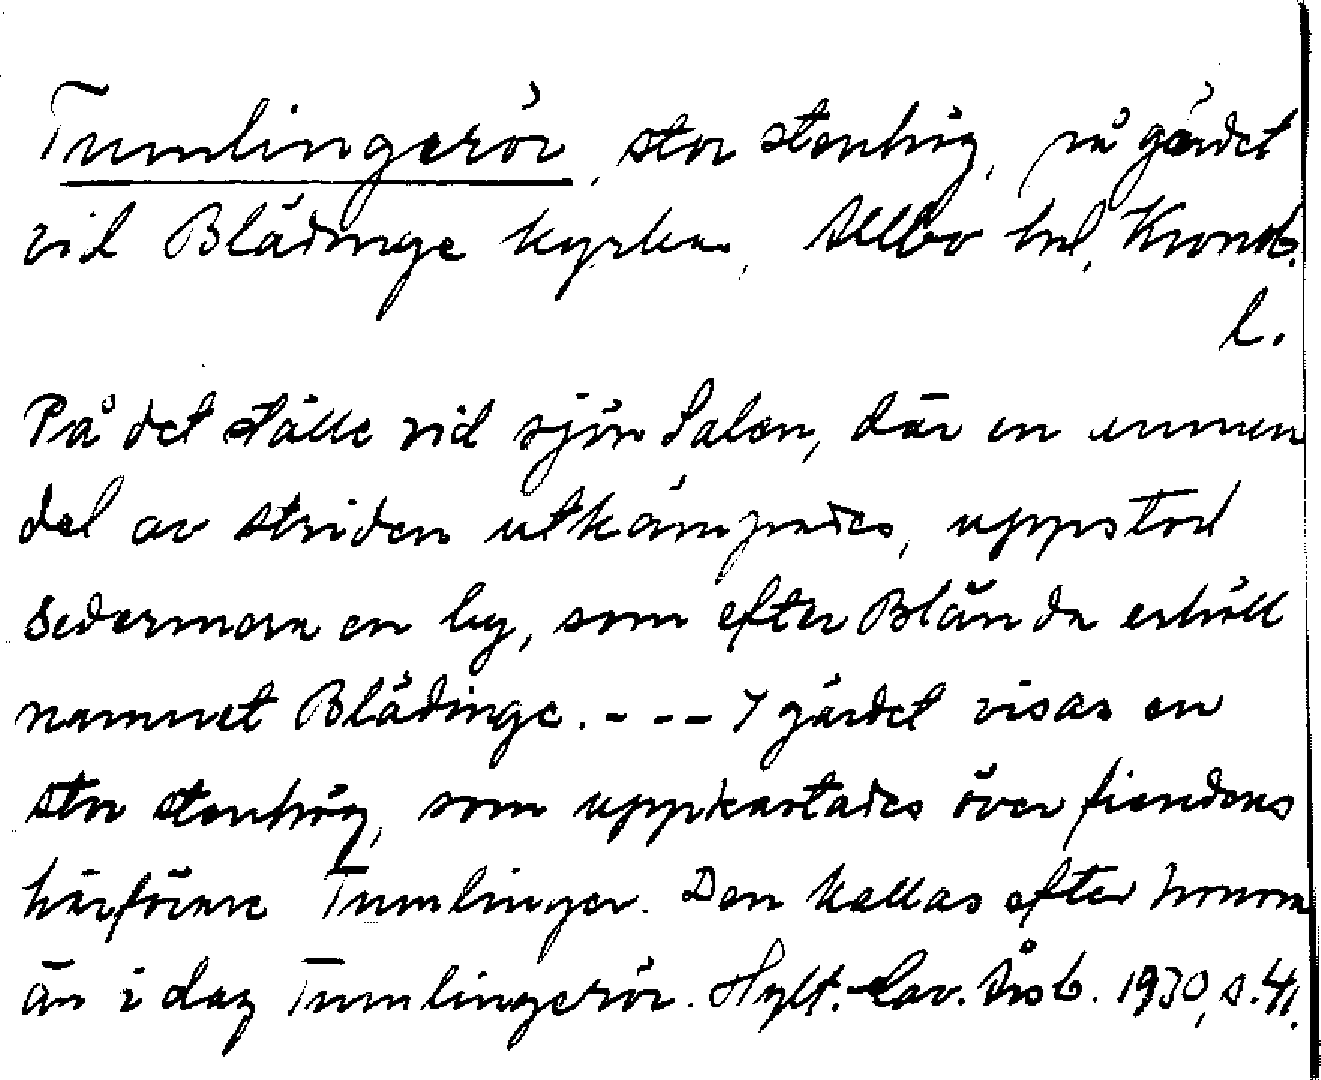 Tumlingerör, stor stenhög, på gärdet
vid Blädinge kyrka, Allbo hd, Kronob.
l.
På det ställe vid sjön Salen, där en annan
del av striden utkämpades, uppstod
sedermera en by, som efter Blända erhöll
namnet Blädinge. - - - I gärdet visas en
stor stenhög, som uppkastades över fiendens
härförare Tumlinger. Den kallas efter honom
än i dag Tumlingerör. Hylt.-Cav. Årsb. 1930, s. 41.